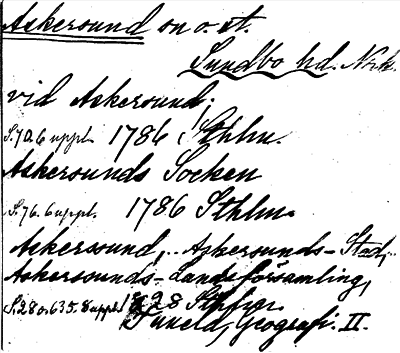 Askersund on o. st.
Sundbo hd. Nrk.
vid Askersund;
S. 70. 6 uppl. 1786 Sthlm.
Askersunds Socken
S. 76. 6 uppl. 1786 Sthlm.
Askersund, .. Askersunds-Stad,..
Askersunds-Landsförsamling,
S. 28 o. 635. 8 uppl. 1828
Tuneld, Geografi. II.